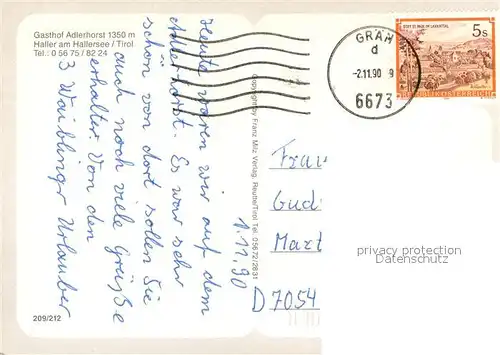 Gasthof Adlerhorst 1350 m
Haller am Hallersee / Tirol
Tel.: 0 56 75 / 82 24
1.11.90
Heute waren wir auf dem
Adlerhorst. Es war sehr
schön von dort sollen Sie
auch noch viele Grüße
erhalten von den
3 Waiblinger Urlauber
209/212
Copyright by Franz Milz Verlag, Reutte/Tirol Tel. 05672/2831
GRÄN
d
-2.11.90 9
6673
5s
REPUBLIK ÖSTERREICH
Frau
Gud
Mart
D 7054
privacy protection
Datenschutz